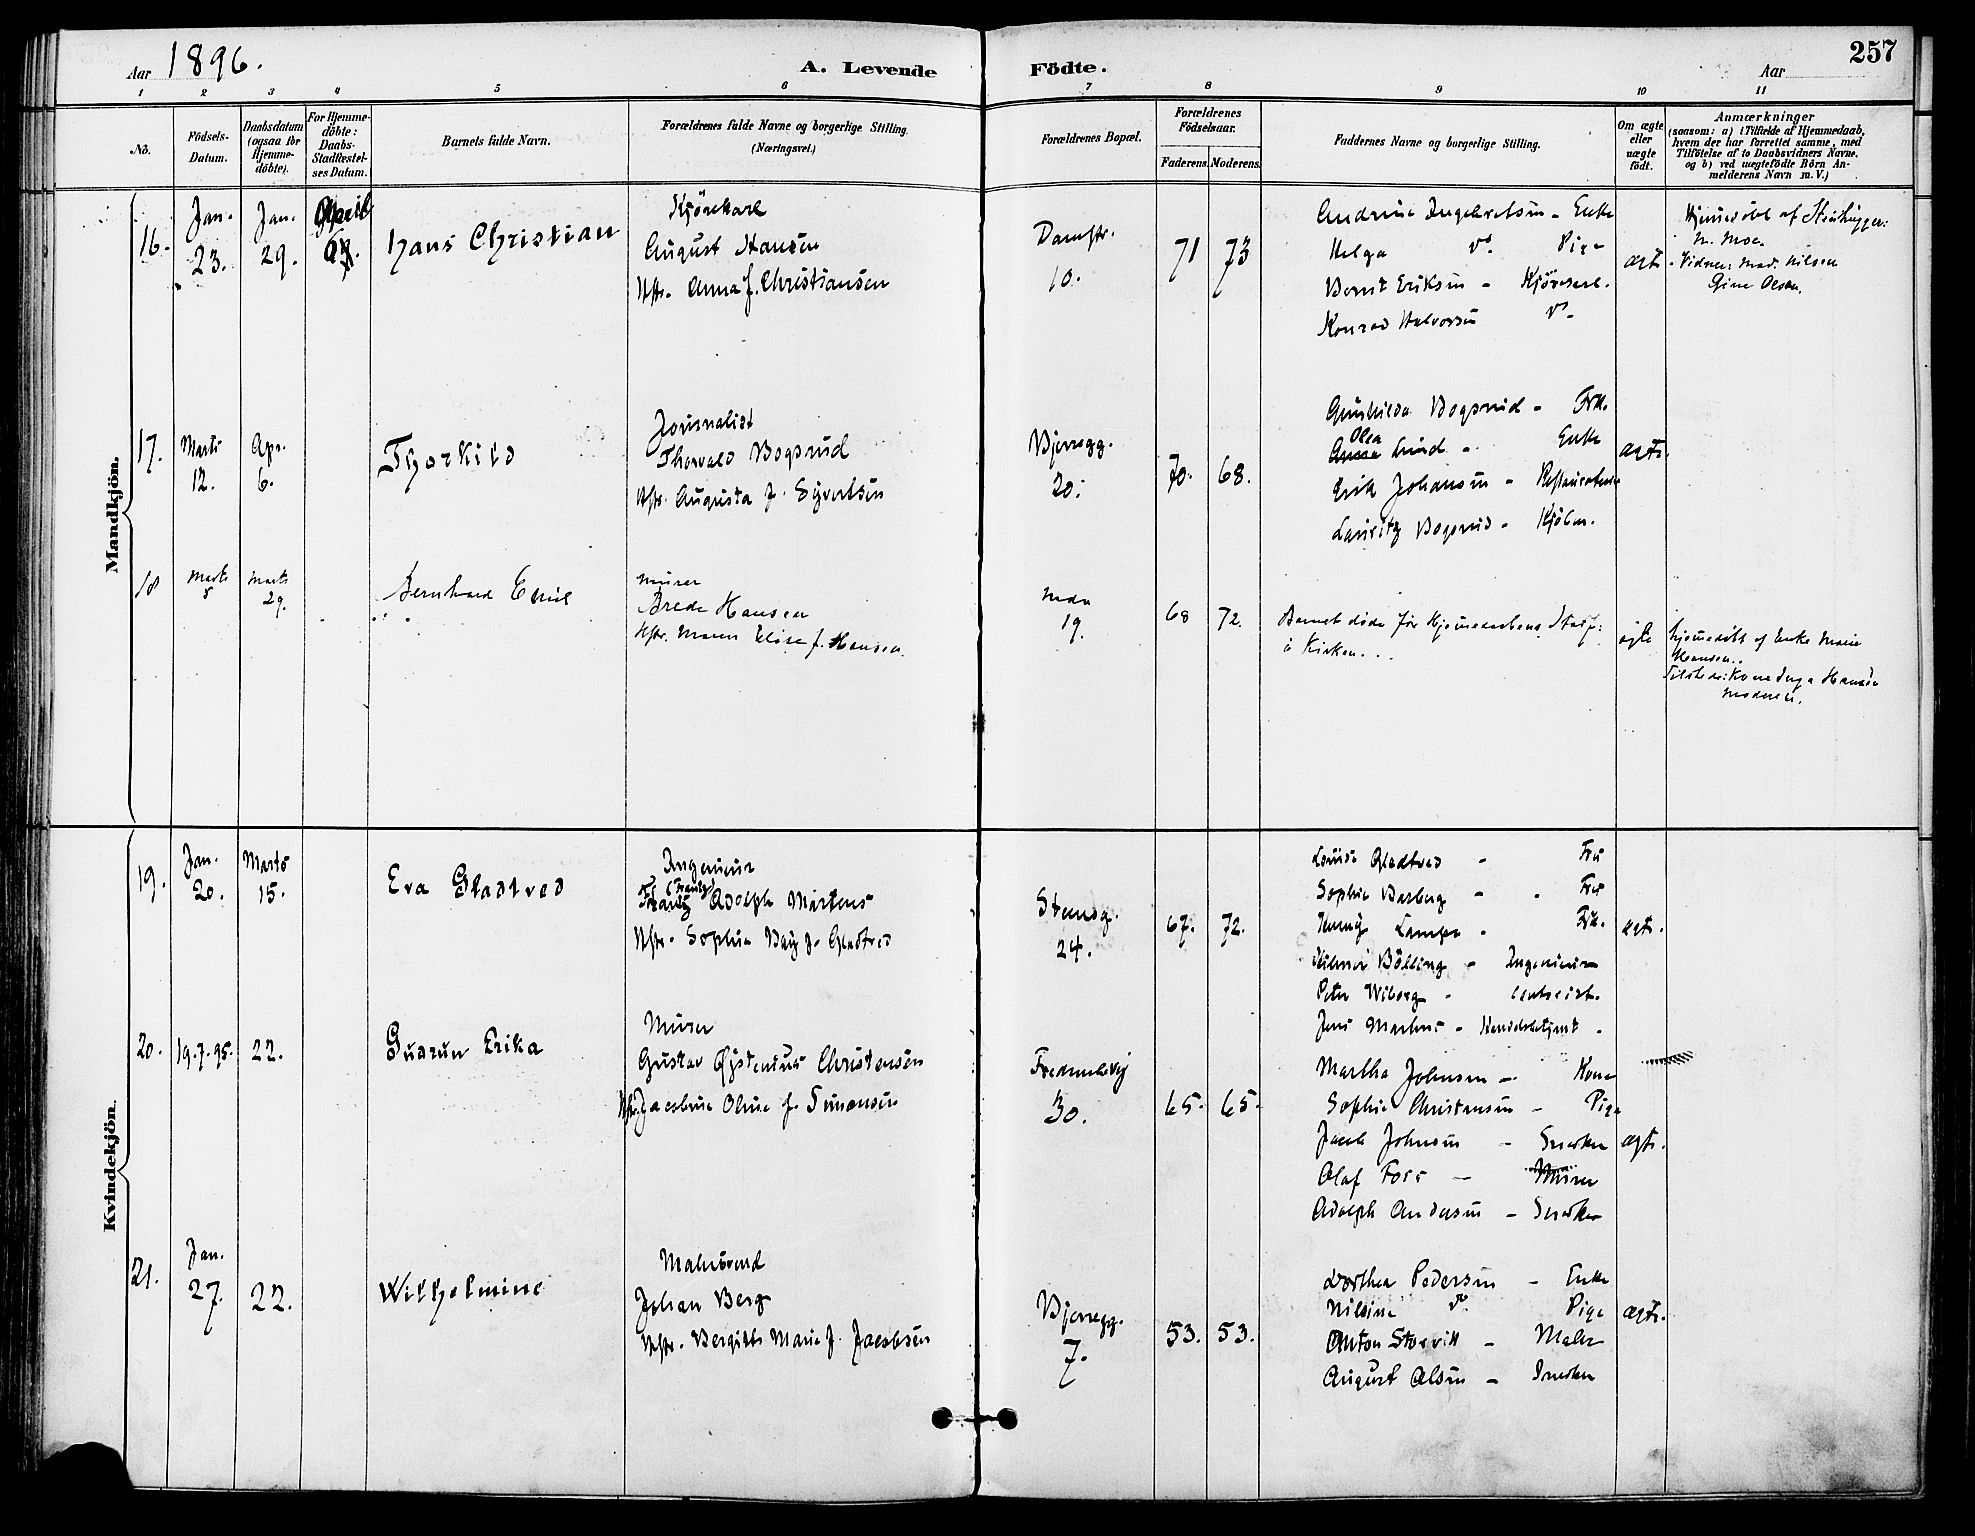 Aar 1896.
A. Levende Födte.
257
Aar
1 2 3 4 5 6 7 8 9 10 11
No.
Födsels-Datum.
Daabsdatum (ogsaa for Hjemmedöbte).
For Hjemmedöbte: Daabs-Stadfæstelses Datum.
Barnets fulde Navn.
Forældrenes fulde Navne og borgerlige Stilling. (Næringsvei.)
Forældrenes Bopæl.
Forældrenes Födselsaar.
Faderens. Moderens.
Faddernes Navne og borgerlige Stilling.
Om ægte eller uægte födt.
Anmærkninger
(saasom: a) i Tilfælde af Hjemmedaab,
hvem der har forrettet samme, med
Tilföielse af to Daabsvidners Navne,
og b) ved uegtefödte Börn An-
melderens Navn m. V.)
Mandkjön.
16. Jan. 23. Jan. 29. April
Hans Christian
Kjørekarl
August Hansen
Hstr. Anna f. Christiansen
Damstr.
10.
71 73
Andrine Ingebretsen - Enke
Helga do. Pige
Bernt Eriksen - Kjørekarl.
Konrad Halvorsen do.
ægte
Hjemmedøbt af Stenhugger
M. Moe.
Vidner: Mad. Nilsen
Gine Olsen.
17. Marts 12. Apr. 6.
Thorkild
Journalist
Thorvald Bogsrud
Hstr. Augusta f. Syvertsen
Bjerregg.
20.
70. 68.
Gunhilda Bogsrud - Frk.
Olea
Anna Lund - Enke
Erik Johansen - Restauratør
Lauritz Bogsrud - Kjøbm.
ægte.
18 Marts 5 Marts 29.
Bernhard Emil
Murer
Brede Hansen
Hstr. Maren Elise f. Hansen.
19.
68 72.
Barnet døde før Hjemmedaabens Stadf:
i Kirken...
ægte
hjemmedøbt af Enke Marie
Hansen..
Tilstede: Kone Inga Hansen
Moderen.
Kvindekjön.
19. Jan. 20. Marts 15.
Eva Gladtved
Ingeniør
(Frantz)
Frantz Adolph Martens
Hstr. Sophie Bay f. Gladtved
Stensg.
24.
67. 72.
Louise Gladtved - Fru
Sophie Barberg - Fru
Lampe - Frk.
Hilmar Bölling - Ingeniør
Peter Wiborg -
Jens Martens - Handelsbetjent.
ægte.
20. 19.7.95. 22.
Gudrun Erika
Murer
Gustav Øystenius Christensen
Hstr. Jacobine Oline f. Simensen
Fredensbvej
30.
65. 65.
Martha Johnsen - Kone
Sophie Christensen - Pige
Jacob Johnsen - Snedker
Olaf Foss - Murer
Adolph Andersen - Snedker
ægte.
21. Jan. 27. 22.
Wilhelmine
Malersvend
Johan Berg
Hstr. Bergitte Marie f. Jacobsen
Bjerregg.
7.
53. 53.
Dorthea Pedersen - Enke
Nilsine do. Pige
Anton Storvik - Maler
August Olsen - Snedker
ægte.